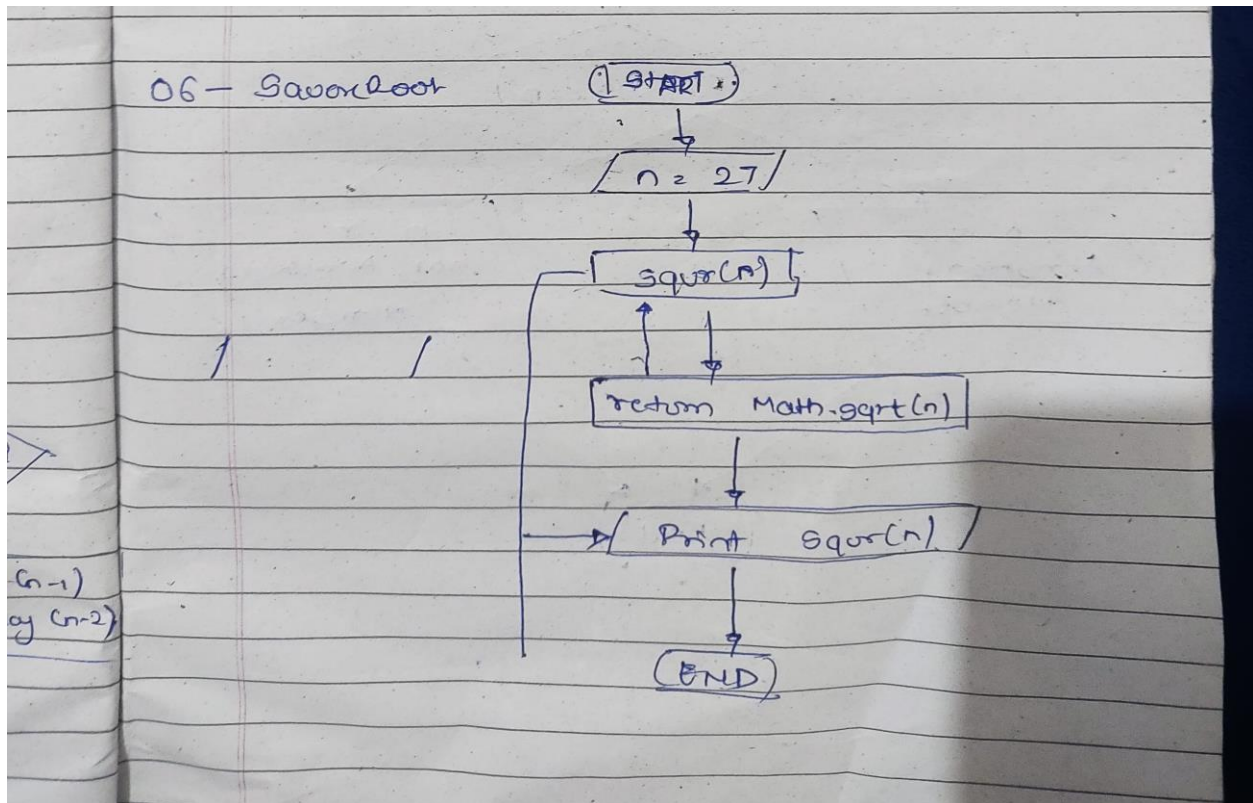 06 - Savorroot
START
n = 27
squr(n)
return Math.sqrt(n)
Print squr(n)
END
(n-1)
(n-2)